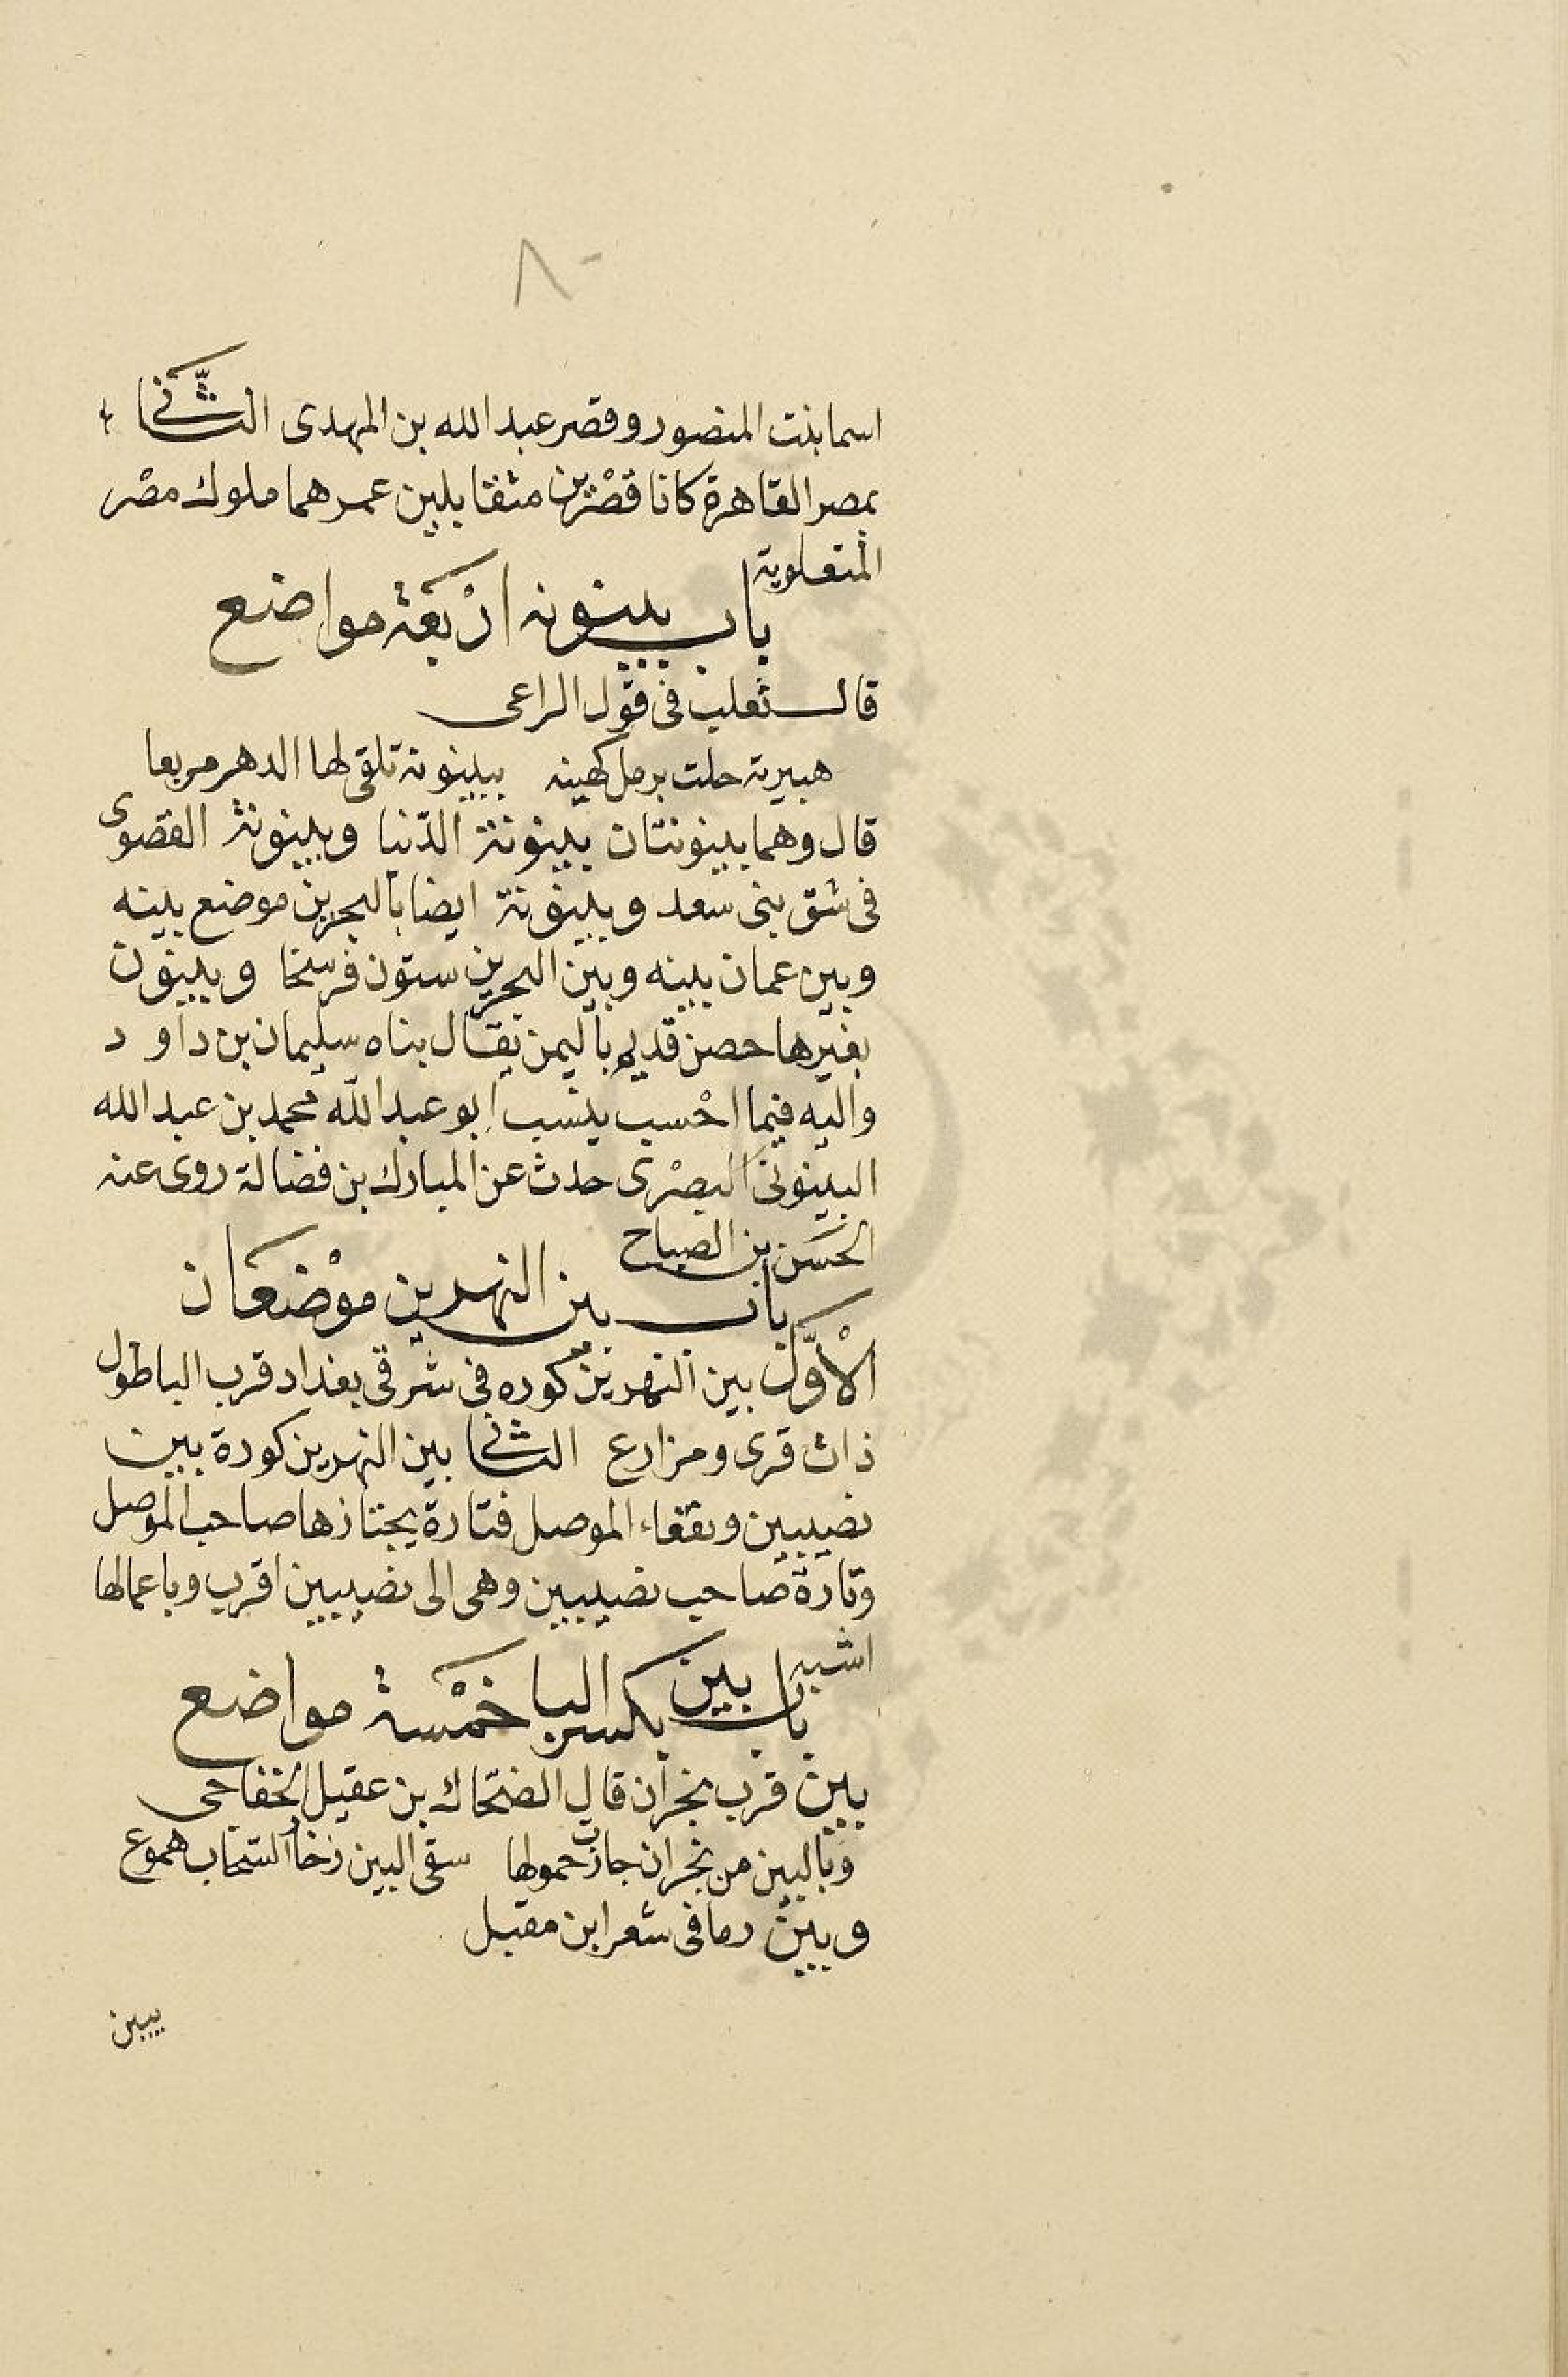 ٨٠
اسما بنت المنصور وقصر عبد الله بن المهدى الثّانى
بمصر القاهرة كانا قصْرين متقابلين عمرهما ملوك مصْر
المتعلوية
باب بينونه ارْبعة مواضع
قال ثعلب فى قول الراعى
هبيرية حلت برمل كهيله ببينونة تلقى لها الدهر مربعا
قال وهما بينونتان بينونة الدّنيا وبينونة القصوى
فى شق بنى سعد وبينونة ايضا بالبحرين موضع بينه
وبين عمان بينه وبين البحرين ستون فرسخا وبينون
بغيرها حصن قديم باليمن يقال بناه سليمان بن داود
واليه فيما احْسب ينسب ابو عبد الله محمد بن عبد الله
البينونى البصْرى حدث عن المبارك بن فضالة روى عنه
الحسَن بن الصباح
باب بين النهرين موْضعان
الْأوّل بين النهرين كوره فى شرقى بغداد قرب الباطول
ذات قرى ومزارع الثانى بين النهرين كورة بين
نصيبين وبقعاء الموصل فتارة يجتازها صاحب الموصل
وتارة صاحب نصيبين وهى الى نصيبين اقرب وباعمالها
اشبه
باب بين بكسر اليا خمْسة مواضع
بين قرب نجران قال الضحاك بن عقيل الخفاجى
وبالبين من نجران جازت حمولها سقى البين رخا السحاب هموع
وبين رما فى شعر ابن مقبل
بين